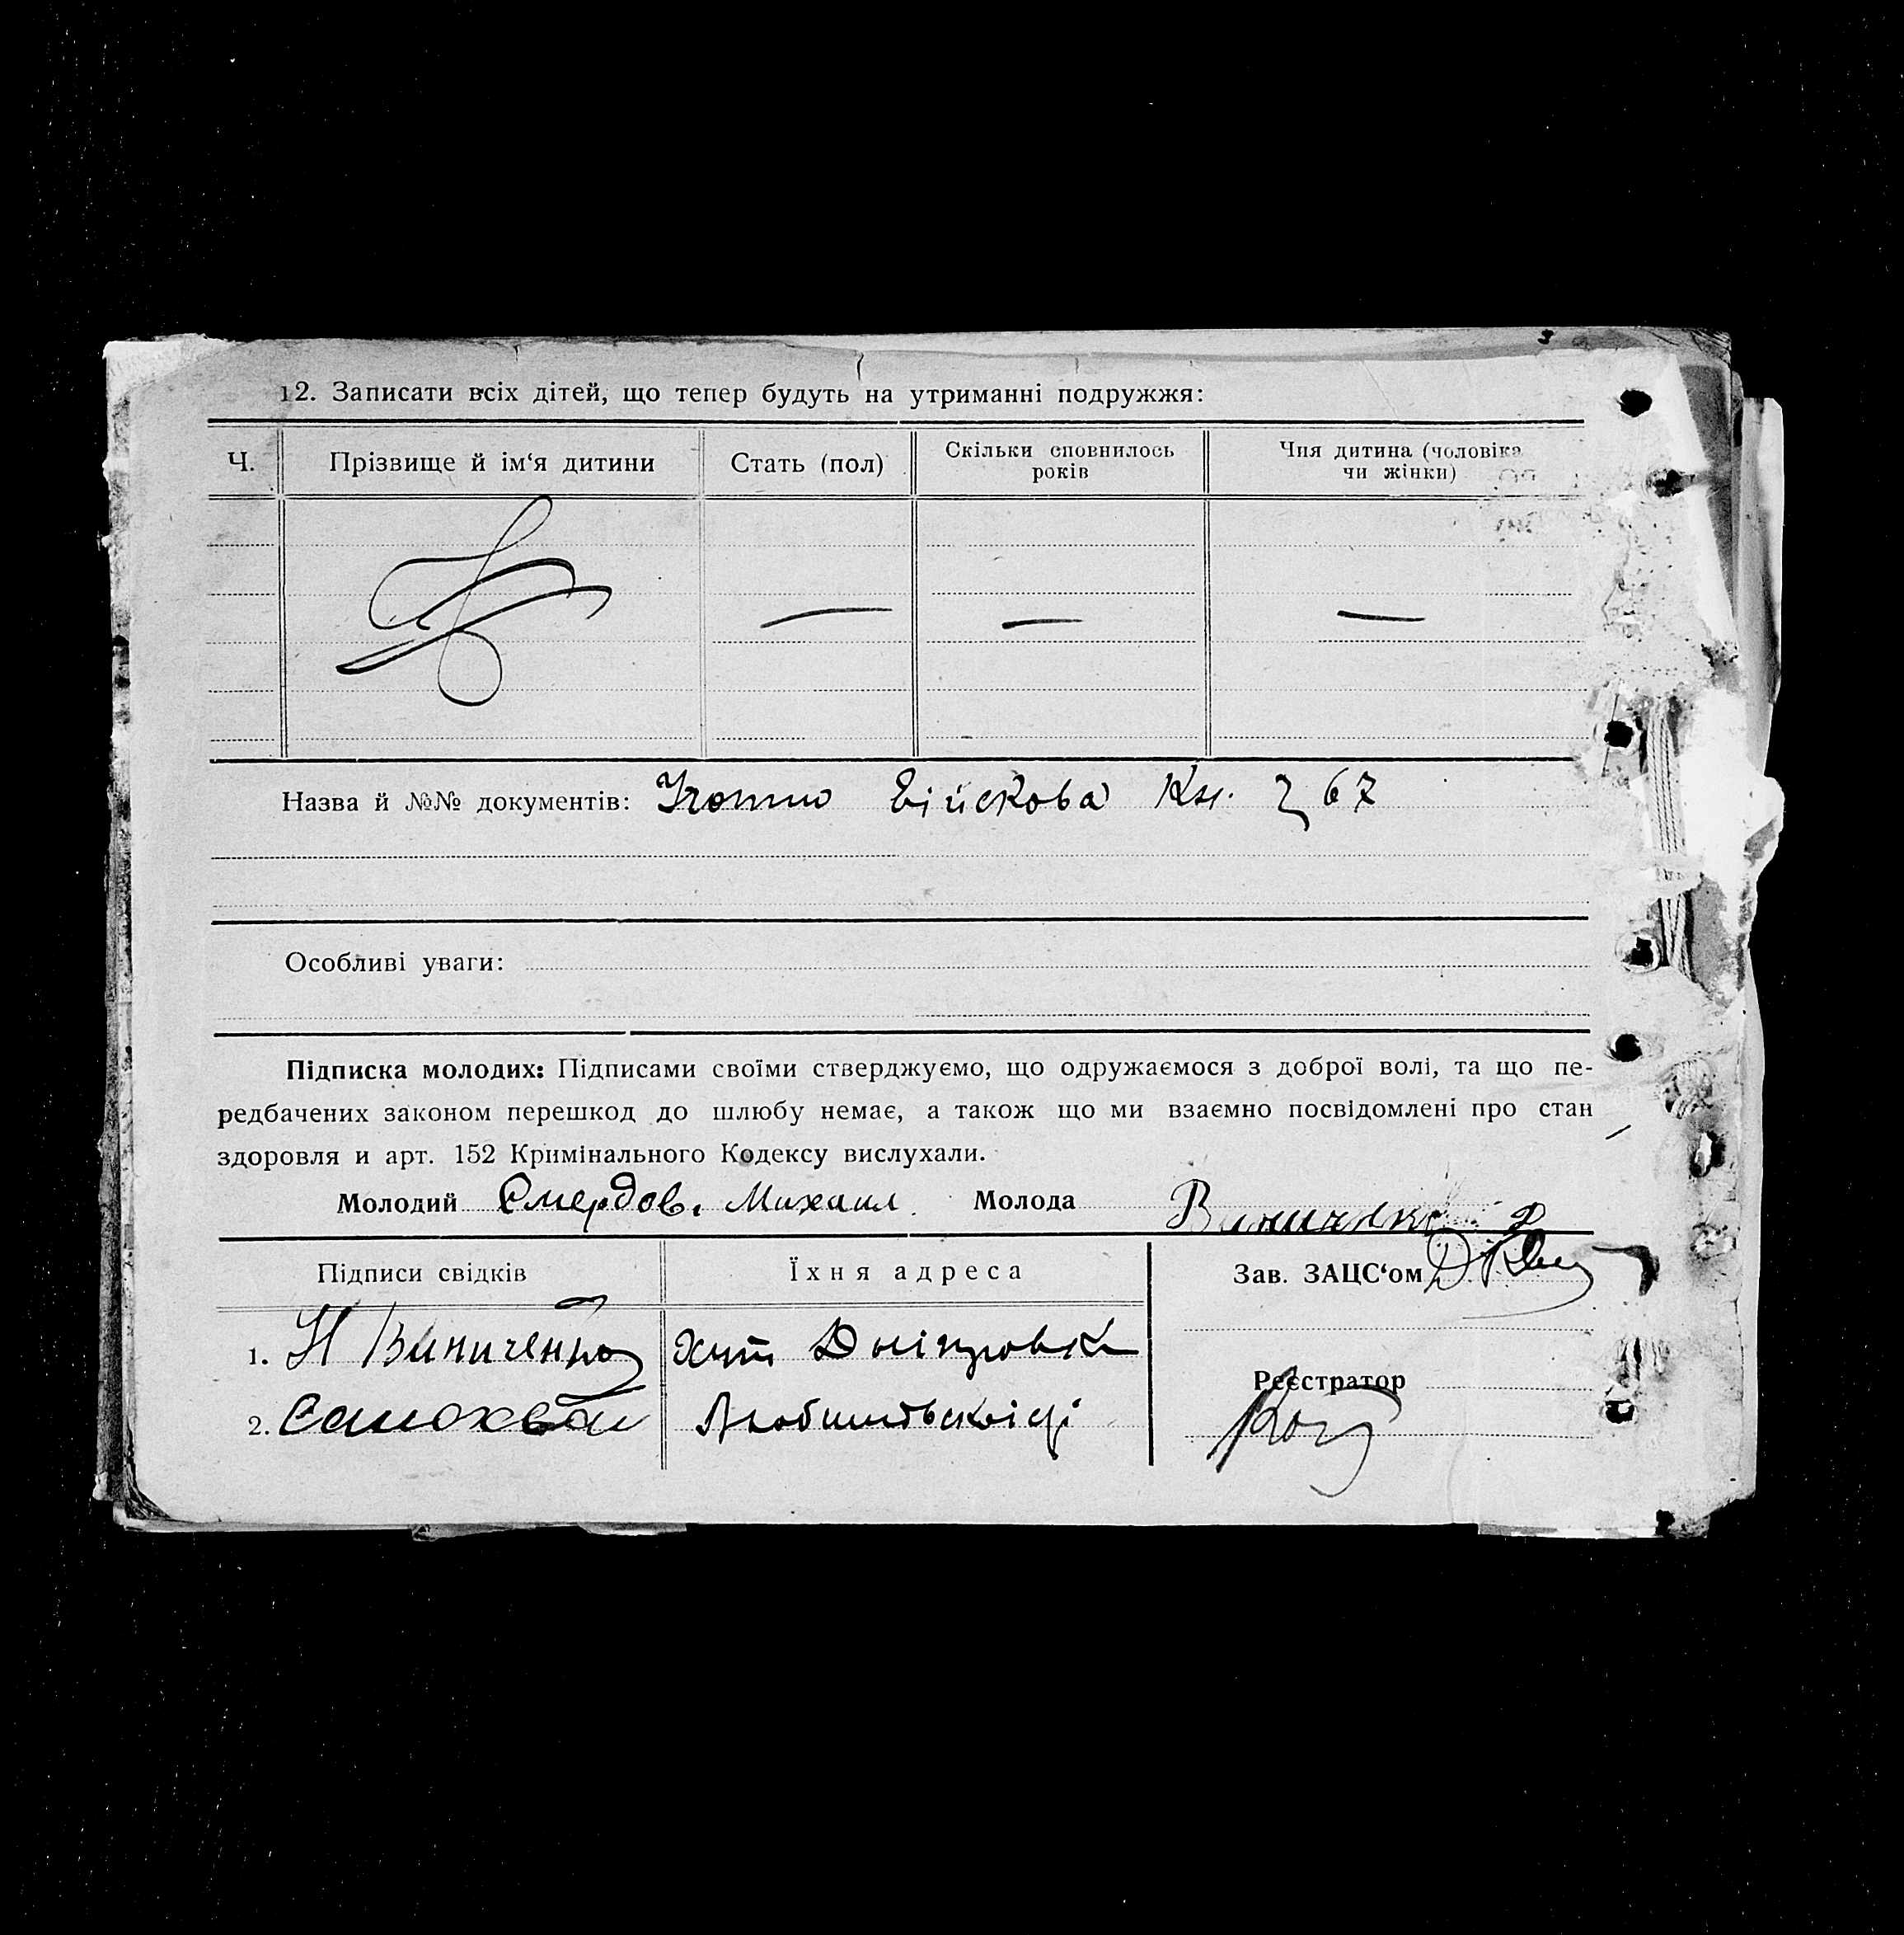 12. Записати всіх дітей, що тепер будуть на утриманні подружжя:
Ч. Прізвище й ім‘я дитини Стать (пол) Скільки сповнилось років Чия дитина (чоловіка чи жінки)
— — —
Назва й №№ документів: Військова Кн. 67
Особливі уваги:
Підписка молодих: Підписами своїми стверджуємо, що одружаємося з доброї волі, та що пе-
редбачених законом перешкод до шлюбу немає, а також що ми взаємно посвідомлені про стан
здоровля и арт. 152 Кримінального Кодексу вислухали.
Молодий Смердов. Михаил. Молода
Підписи свідків Їхня адреса Зав. ЗАЦС‘ом
1. Н Виниченко Хут
Реєстратор
2. Самохвал